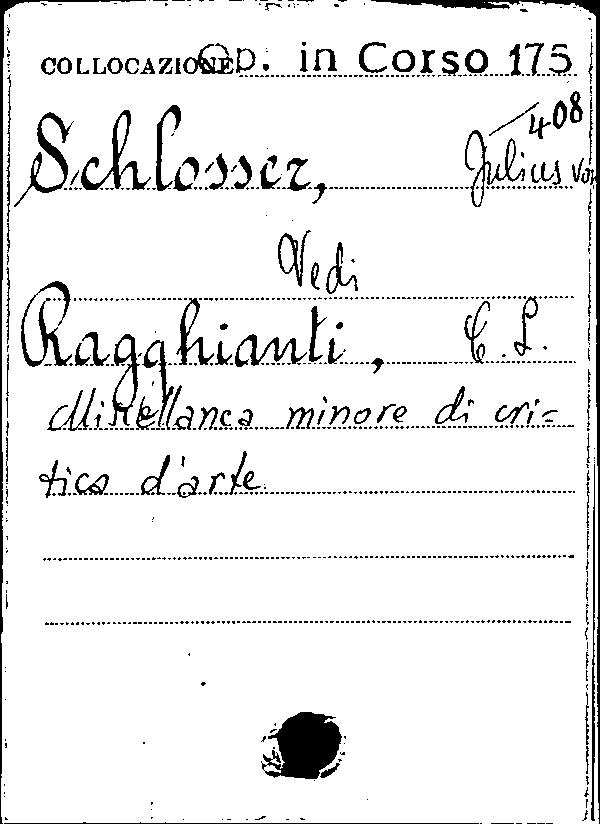 COLLOCAZIONE Op. in Corso 175
408
Schlosser, Julius von
Vedi
Ragghianti, C. L.
Miscellanea minore di cri=
tica d'arte